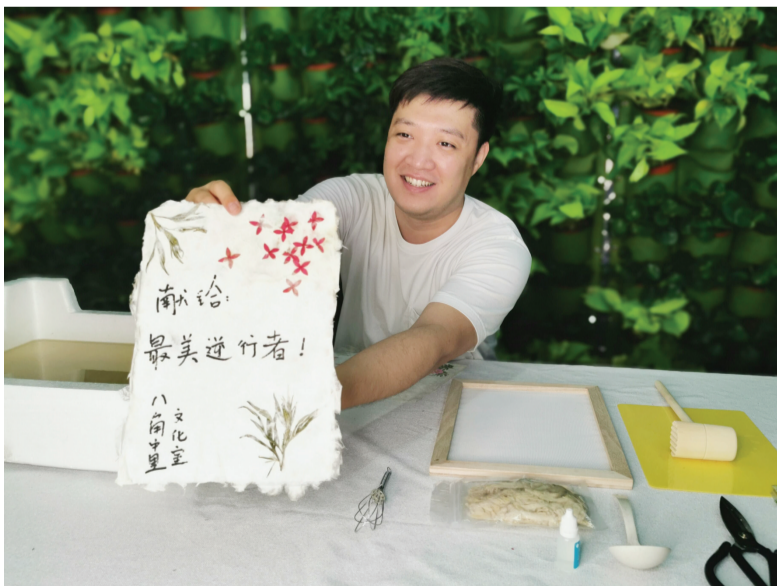 献给:
最美逆行者!
八角中里
文化室